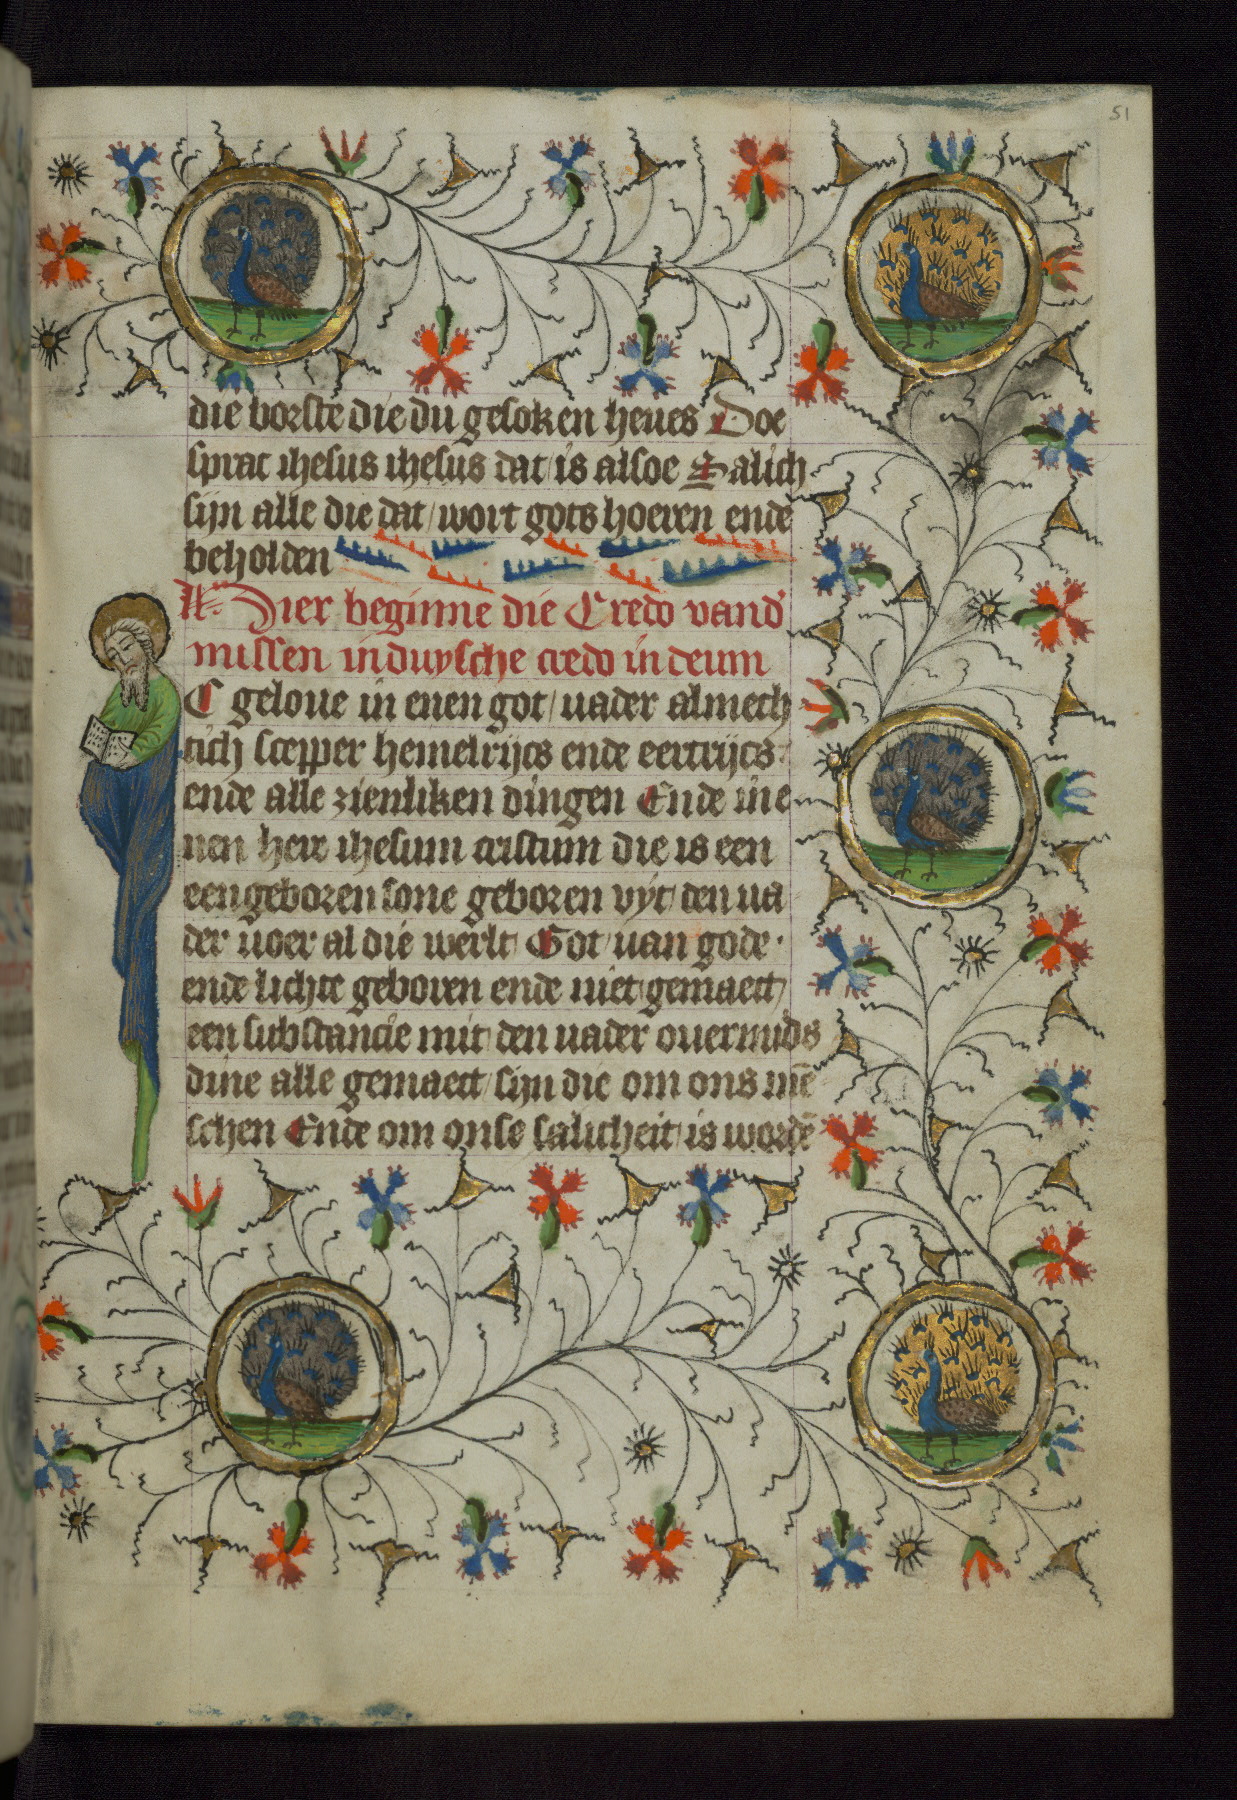 51
die borste die du gesoken heues Doe
sprac ihesus ihesus dat is alsoe Salich
sijn alle die dat wort gots hoeren ende
beholden
Hier beginne die Credo vand'
missen in duytsche credo in deum
C gheloue in enen got uader almech
tich scepper hemelrijcs ende eertrijcs
ende alle zienliken dingen Ende in e
nen here ihesum cristum die is een
eengeboren sone geboren vyt den ua
der uoer al die werlt Got uan gode ·
ende lichte geboren ende niet gemaect
een substancie mit den uader ouermids
dine alle gemaect sijn die om ons mē
schen Ende om onse salicheit is wordē